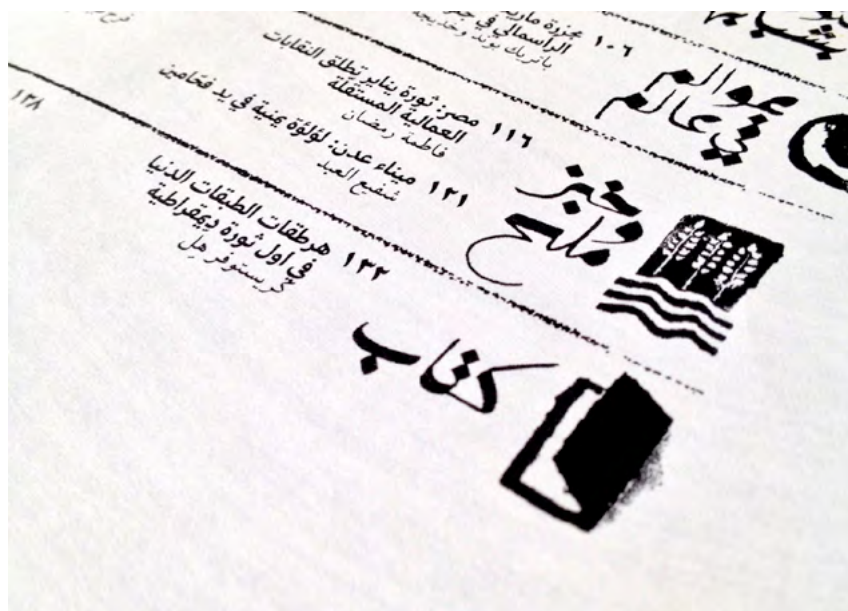 عوالم
في عالم
١٠٦ مجزرة
الراسمالي في
باتريك بوند
خبز
وملح
١١٦ مصر: ثورة يناير تطلق النقابات
العمالية المستقلة
فاطمة رمضان
١٢١ ميناء عدن: لؤلؤة يمنية في يد فخامين
شفيع العبد
كتاب
١٣٢ هرطقات الطبقات الدنيا
في اول ثورة ديمقراطية
كريستوفر هل
١٣٨